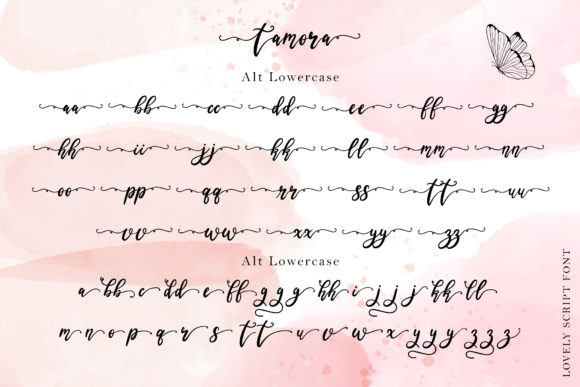 tamora
Alt Lowercase
aa bb cc dd ee ff gg
hh ii jj kk ll mm nn
oo pp qq rr ss tt uu
vv ww xx yy zz
Alt Lowercase
a bb c dd e ff g g g hh i j j j kk ll
m n o p q r s tt u v w x y y y z z z
LOVELY SCRIPT FONT